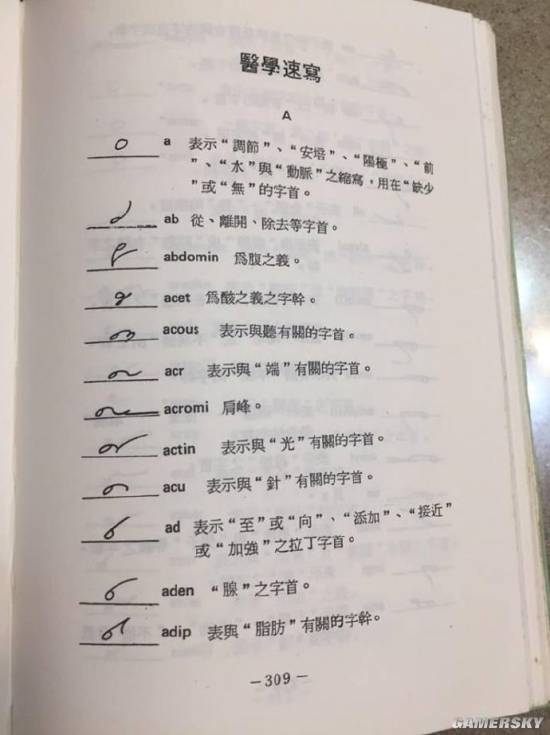 醫學速寫
A
a 表示“調節”、“安培”、“陽極”、“前
”、“水”與“動脈”之縮寫，用在“缺少
”或“無”的字首。
ab 從、離開、除去等字首。
abdomin 爲腹之義。
acet 爲酸之義之字幹。
acous 表示與聽有關的字首。
acr 表示與“端”有關的字首。
acromi 肩峰。
actin 表示與“光”有關的字首。
acu 表示與“針”有關的字首。
ad 表示“至”或“向”、“添加”、“接近”
或“加強”之拉丁字首。
aden “腺”之字首。
adip 表與“脂肪”有關的字幹。
—309—
GAMERSKY